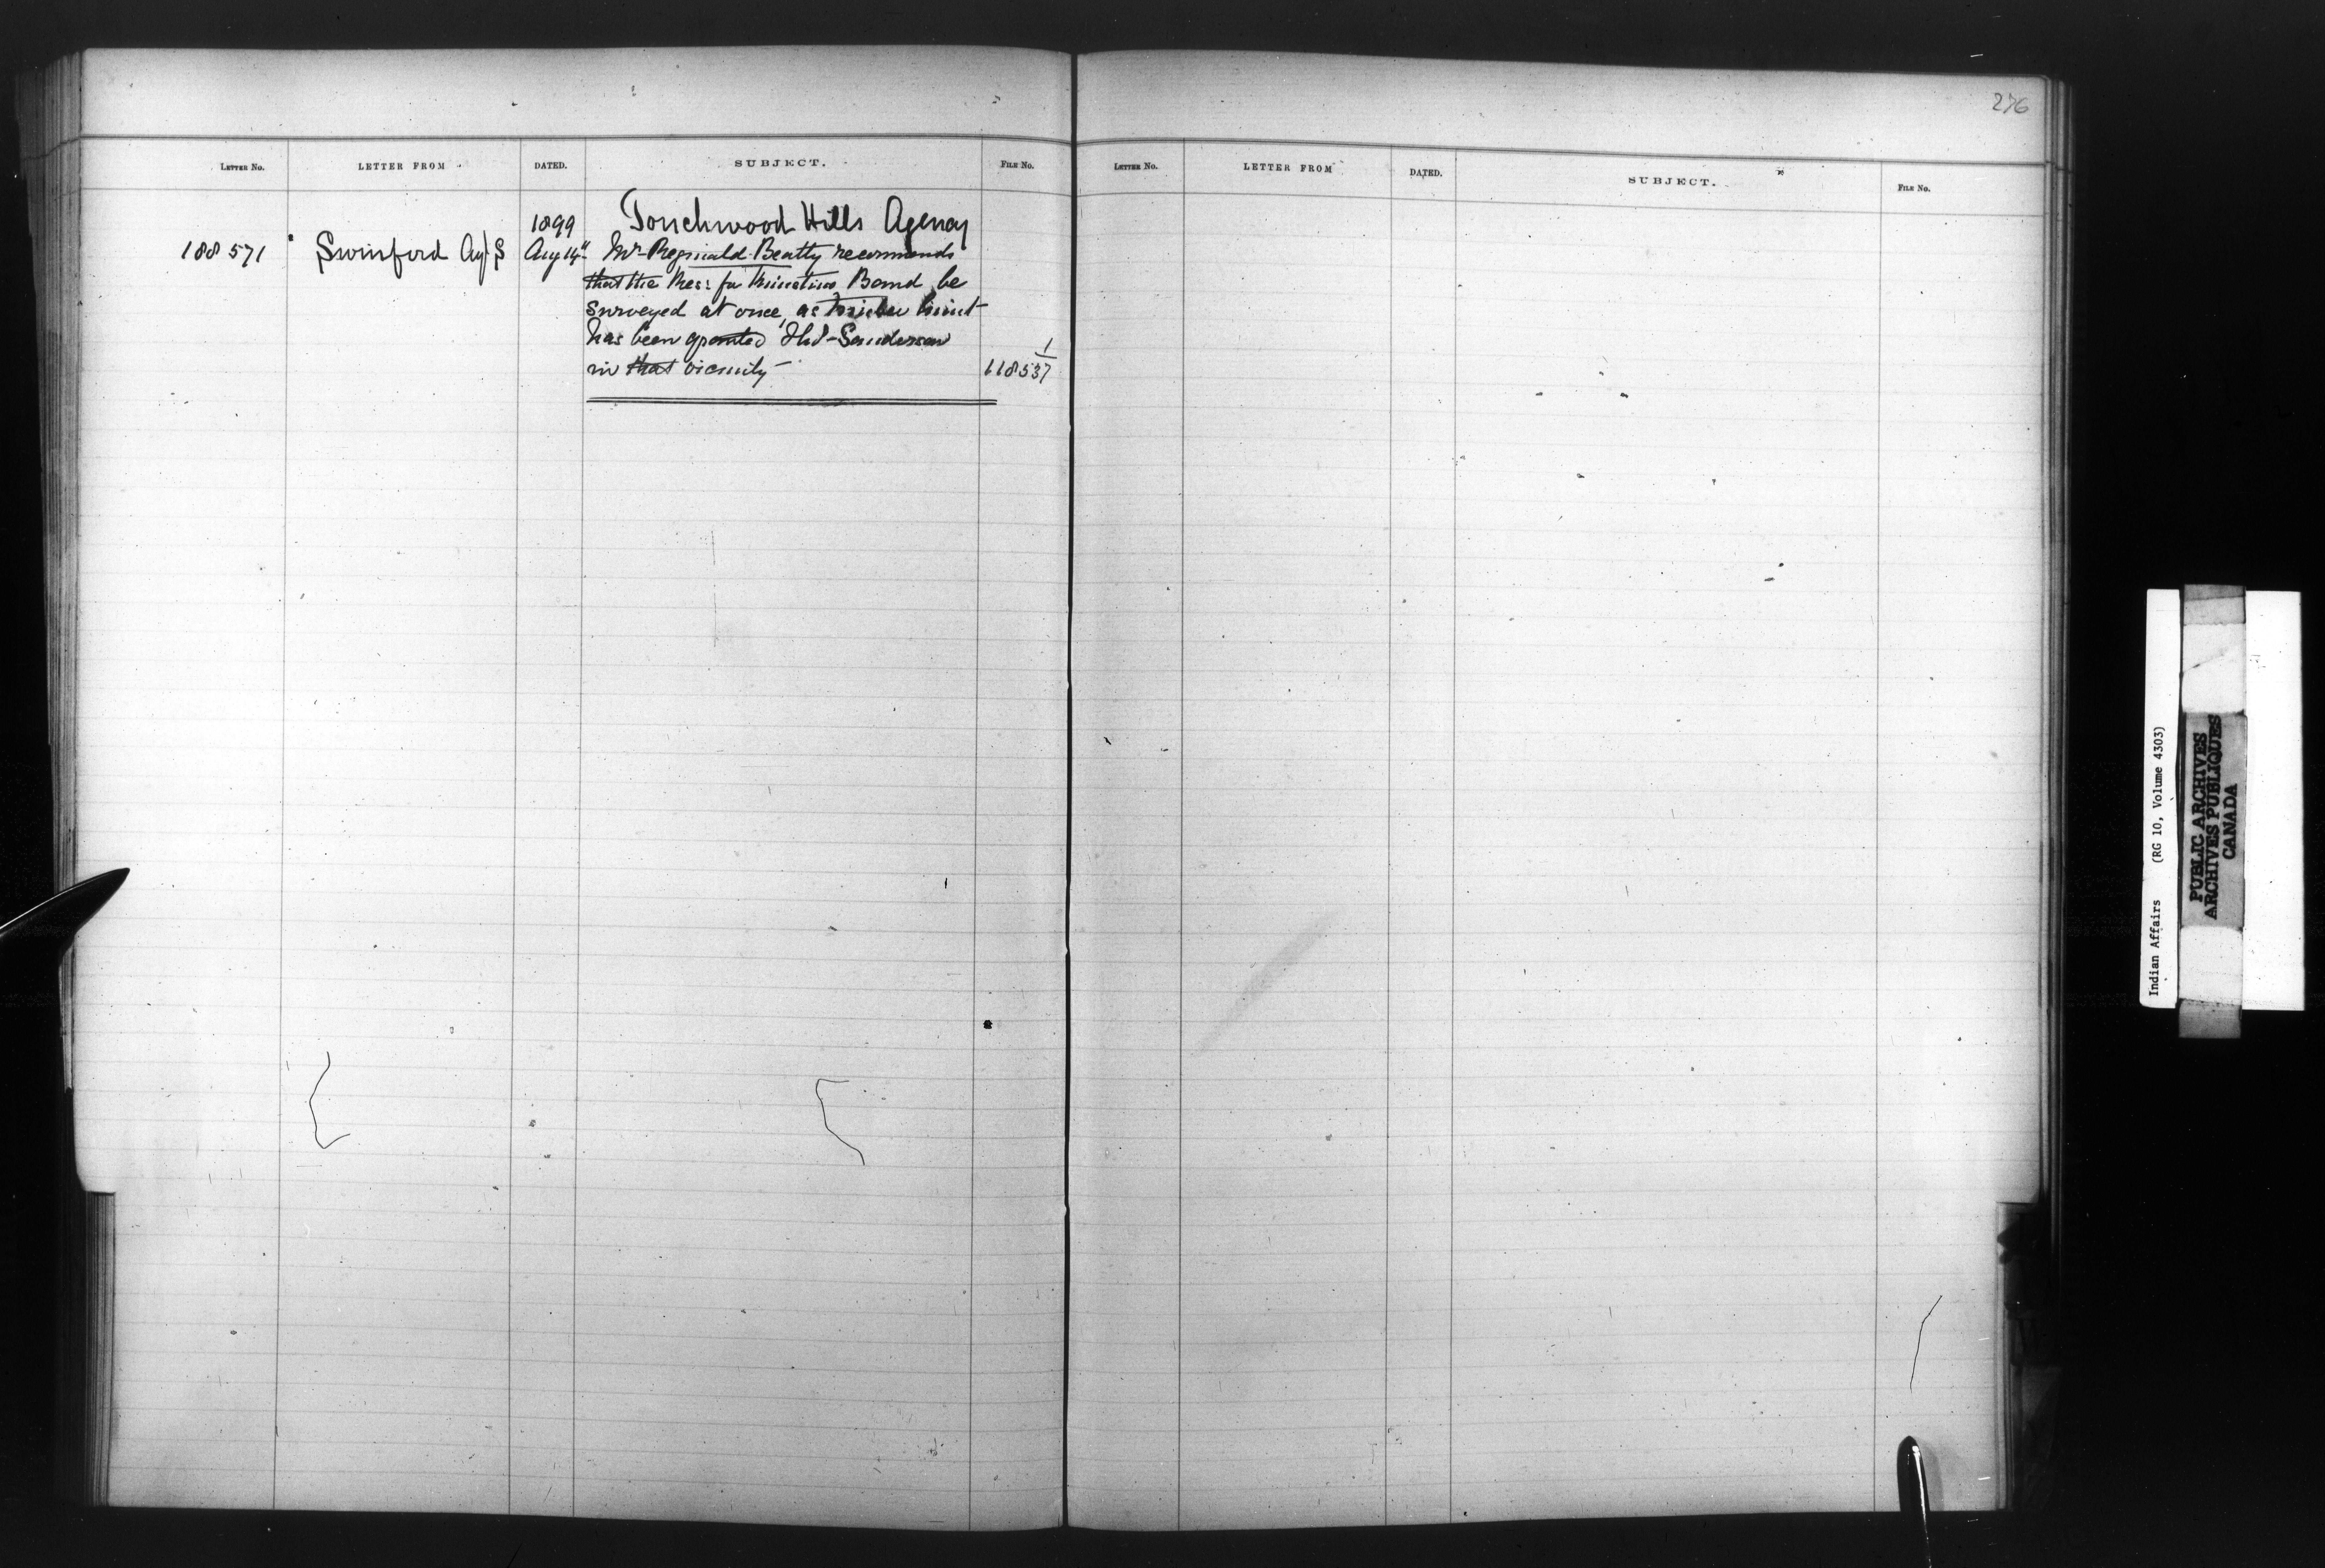 276
LETTER NO. LETTER FROM DATED. SUBJECT. FILE NO.
LETTER NO. LETTER FROM DATED. SUBJECT. FILE NO.
1899 Touchwood Hills Agency
188571 Swinford Ag't S Aug 14" Mr Reginald Beatty recommends
that the Res: for Kinistino Band be
surveyed at once, as timber limit
has been granted Thos Sanderson
in that vicinity
1
118537
Indian Affairs (RG 10, Volume 4303)
PUBLIC ARCHIVES
ARCHIVES PUBLIQUES
CANADA